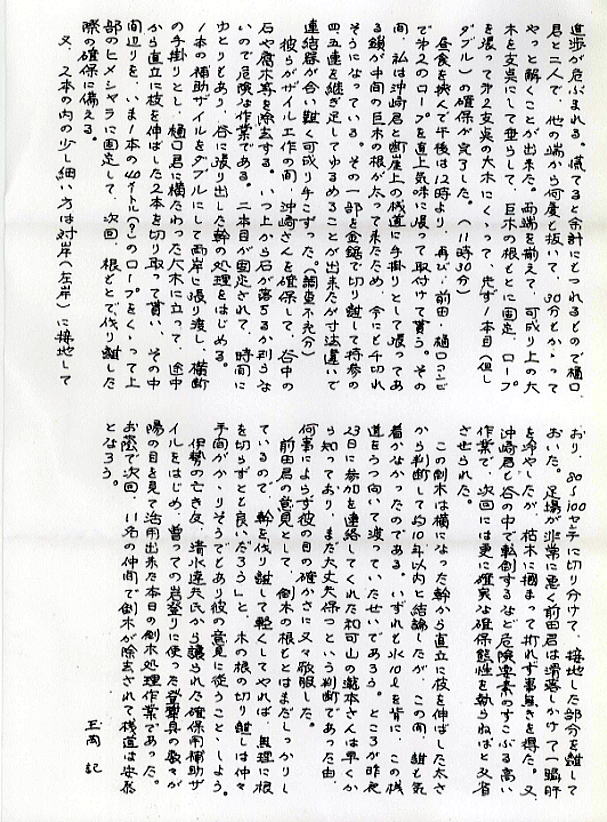 進歩が危ぶまれる。慌てると余計にもつれるもので樋口
君と二人で、他の端から何度も抜いて、30分もかかって
やっと解くことが出来た。両端を揃えて、可成り上の大
木を支点にして垂らして、巨木の根もとに固定、ロープ
を張って第2支点の大木にくくって、先ず1本目(但し
ダブル)の確保が完了した。(11時30分)
昼食を挟んで午後は12時より、再び、前田・樋口コンビ
で第2のロープを直上気味に張って取付けて貰う。その
間、私は沖崎君と断崖上の桟道に手掛りとして張ってあ
る鎖が中間の巨木の根が太って来たため、今にも千切れ
そうになっている。その一部を金鋸で切り離して持参の
四、五連を継ぎ足してゆるめることが出来たが寸法違いで
連結器が合い難く可成り手こずった。(調査不充分)
彼らがザイル工作の間、沖崎さんを確保して、谷中の
石や腐木等を除去する。いつ上から石が落ちるか判らな
いので危険な作業である。二本目が固定されて、時間に
ゆとりもあり、谷に張り出した幹の処理をはじめる。
1本の補助ザイルをダブルにして両岸に張り渡し、横断
の手掛りとし、樋口君に横たわった大木に立って、途中
から直立に枝を伸ばした2本を切り取って貰い、その中
間辺りを、いま1本の40メートル(?)のロープをくくって上
部のヒメシャラに固定して、次回、根もとで伐り離した
際の確保に備える。
又、2本の内の少し細い方は対岸(左岸)に接地して
おり、80〜100センチに切り分けて、接地した部分を離して
おいた。足場が非常に悪く前田君は滑落しかけて一瞬肝
を冷やしたが、枯木に掴まって折れず事無きを得た。又、
沖崎君も谷の中で転倒するなど危険要素のすこぶる高い
作業で、次回には更に確実な確保態性を執らねばと又省
させられた。
この倒木は横になった幹から直立に枝を伸ばした太さ
から判断して約10年以内と結論したが、この間、誰も気
着かなかったのである。いずれも水10ℓを背に、この桟
道をうつ向いて渡っていたせいであろう。ところが昨夜
23日に参加を連絡してくれた和可山の瀧本さんは早くか
ら知っており、まだ大丈夫保つという判断であった由、
何事によらず彼の目の確かさに又々敬服した。
前田君の意見として、倒木の根もとはまだしっかりし
ているので、幹を伐り離して軽くしてやれば、無理に根
を切らずとも良いだろう」と、木の根の切り離しは仲々
手間がかかりそうでもあり彼の意見に従うこととしよう。
伊勢の亡き友、清水達夫氏から譲られた確保用補助ザ
イルをはじめ、嘗っての岩登りに使った登攀具の数々が
陽の目を見て活用出来た本日の倒木処理作業であった。
お蔭で次回、11名の仲間で倒木が除去されて桟道は安泰
となろう。
玉岡 記